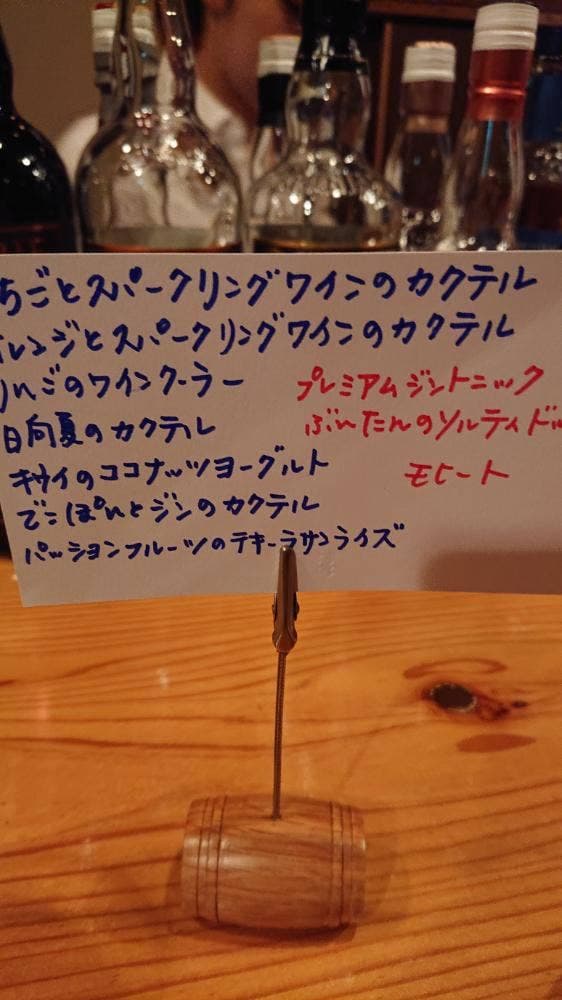 ちごとスパークリングワインのカクテル
レンジとスパークリングワインのカクテル
りんごのワインクーラー
プレミアムジントニック
日向夏のカクテル
ぶんたんのソルティド
キウイのココナッツヨーグルト
モヒート
でこぽんとジンのカクテル
パッションフルーツのテキーラサンライズ